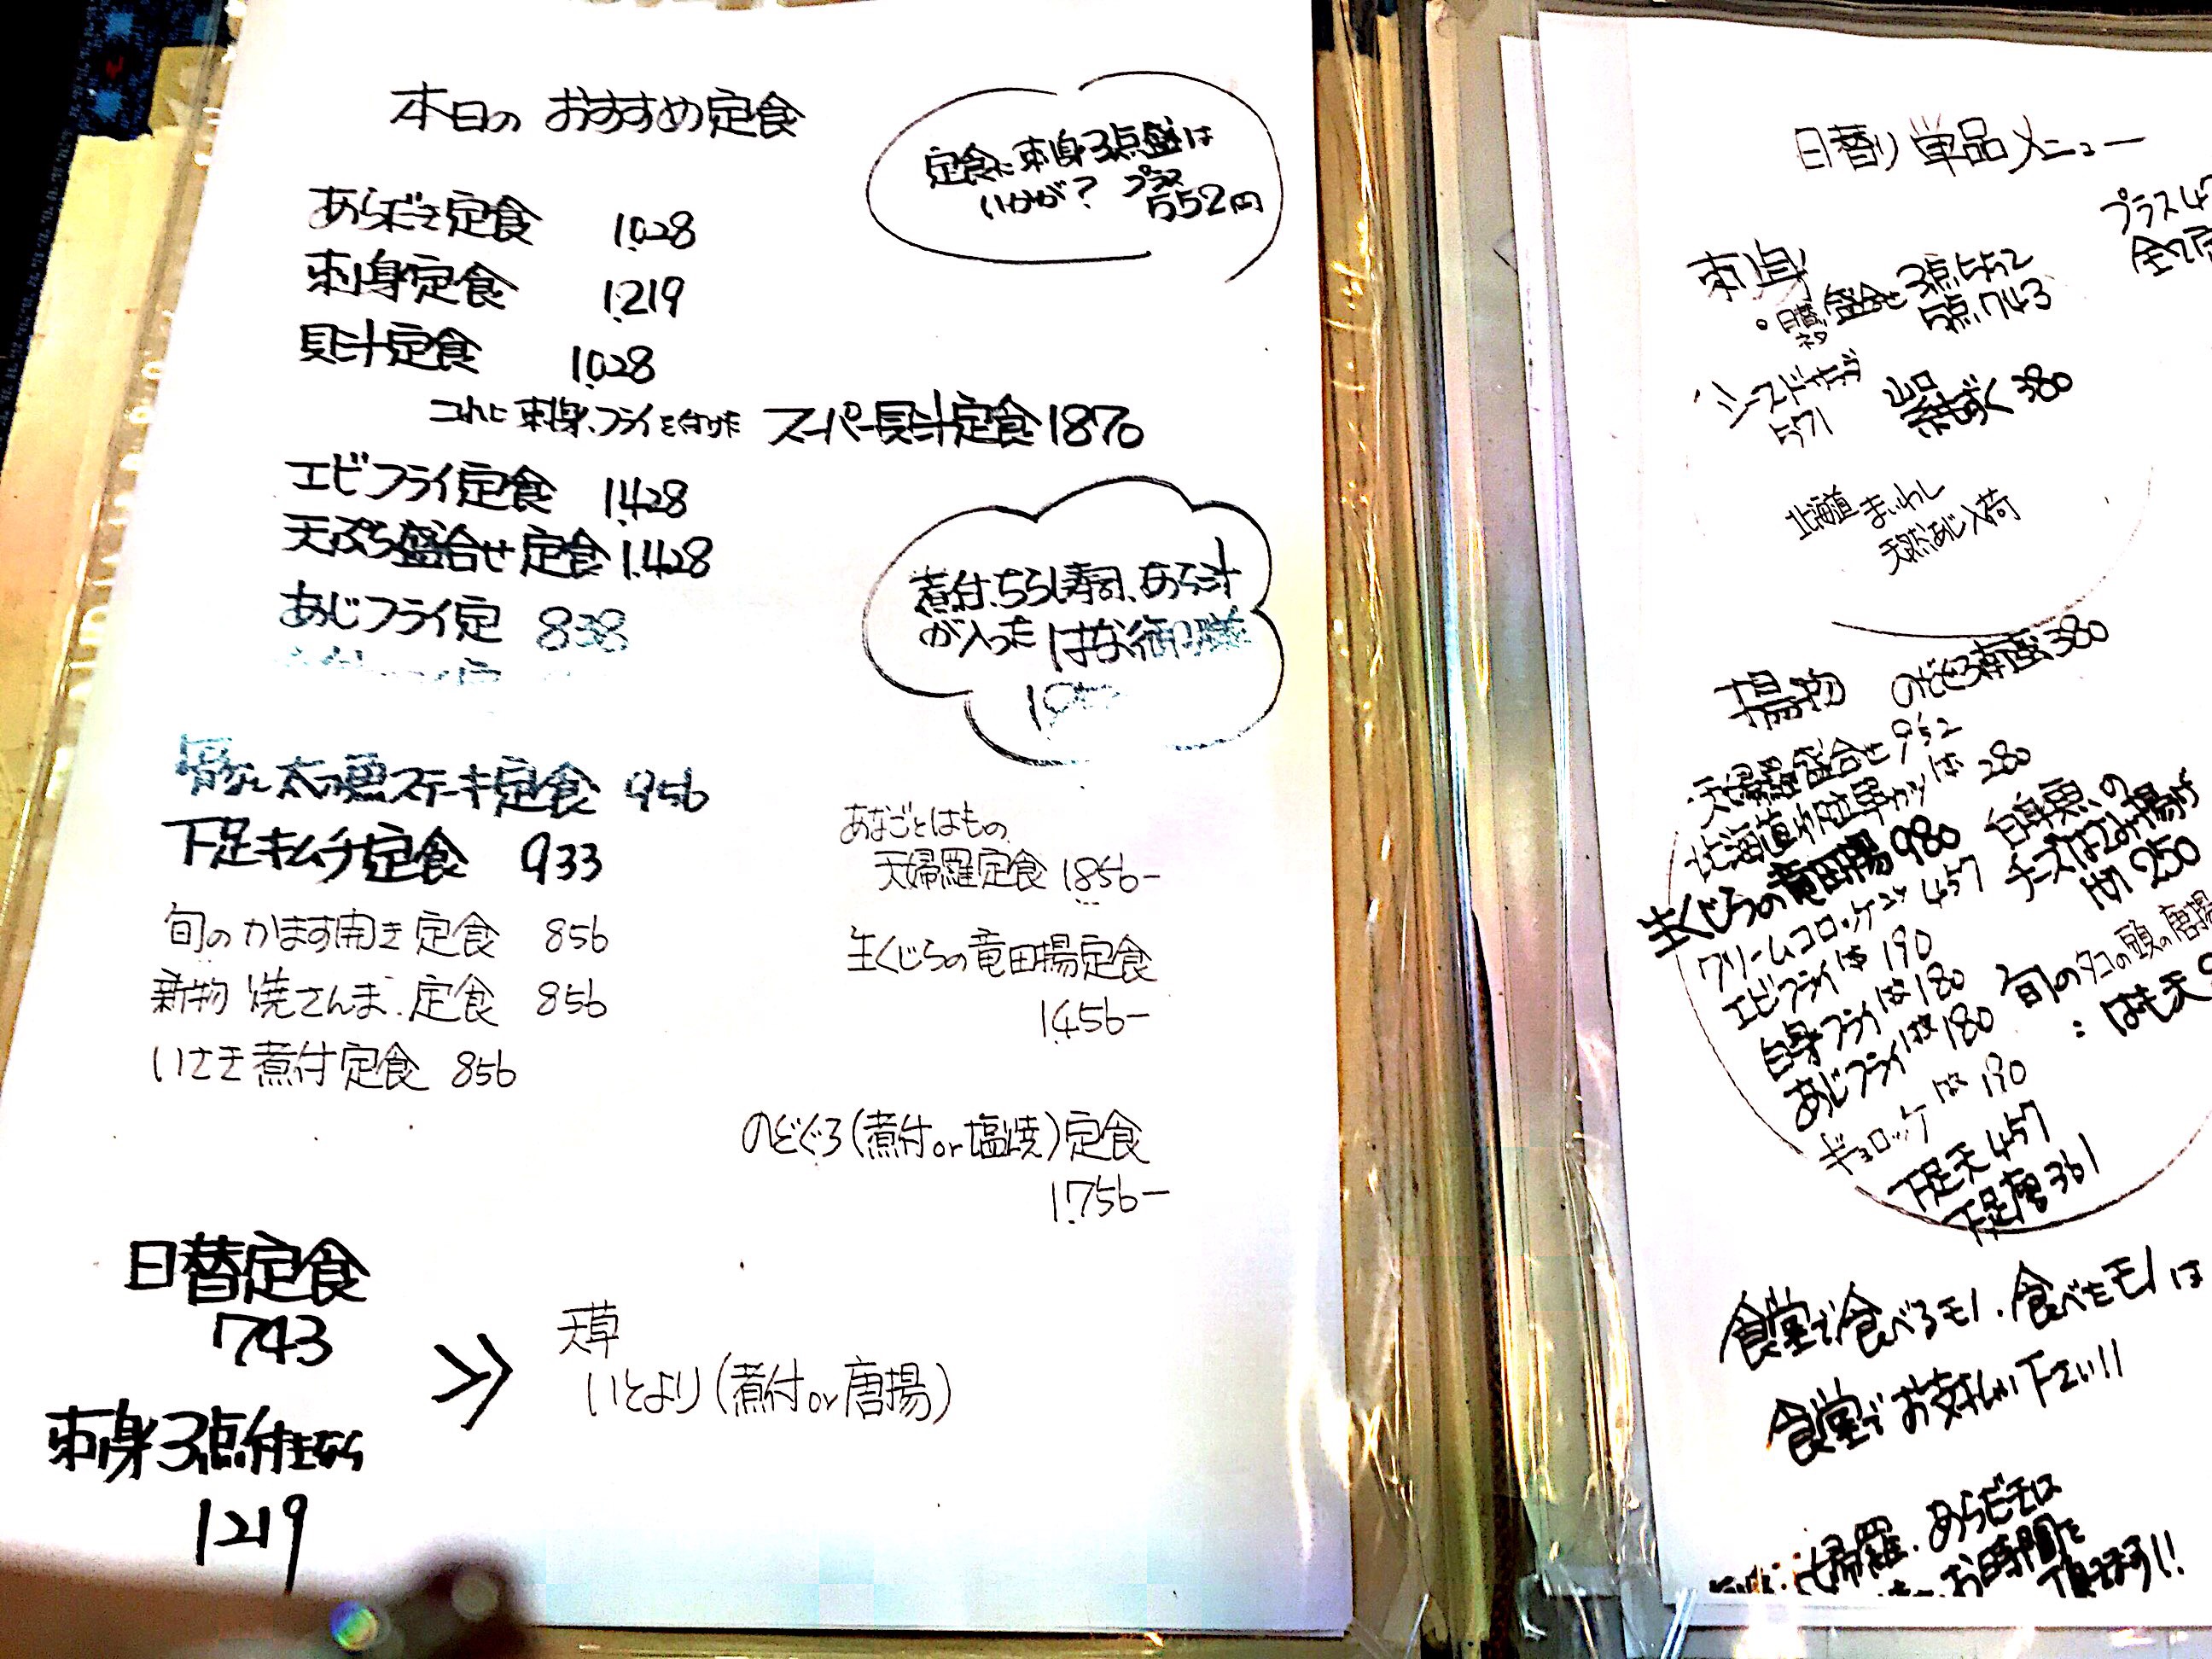 本日の おすすめ定食
定食に刺身3点盛は
いかが? プラス
552円
あらだき定食 1,028
刺身定食 1,219
貝汁定食 1,028
これに刺身、フライを付けた スーパー貝汁定食 1870
エビフライ定食 1,428
天ぷら盛合せ定食 1,428
あじフライ定 838
煮付、ちらし寿司、あら汁
が入った はな御膳
太刀魚ステーキ定食 956
下足キムチ定食 933
旬のかます開き定食 856
新物 焼さんま定食 856
いさき煮付定食 856
あなごとはもの
天婦羅定食 1,856-
生くじらの竜田揚定食
1,456-
のどぐろ(煮付or塩焼)定食
1,756-
日替定食
743
刺身3点付きなら
1219
≫
天草
いとより(煮付or唐揚)
日替り単品メニュー
プラス47
刺身
・日替ネタ 盛合せ 3点552
5点743
シーフードサラダ
571
山口
糸もずく 380
北海道 まいわし
天然あじ入荷
揚物
のどぐろ南蛮 380
・天婦羅盛合せ 952
280
生くじらの竜田揚 980
クリームコロッケ2ヶ 457
エビフライ1本 190
白身フライ1枚 180
あじフライ1枚 180
ギョロッケ1枚 190
下足天 457
下足唐 361
白身魚の
チーズはさみ揚げ
1切 250
旬のタコの頭の唐揚
はも天
食堂で食べるモノ、食べたモノは
食堂でお支払い下さい!!
婦羅、あらだきは
お時間を
頂きます!!